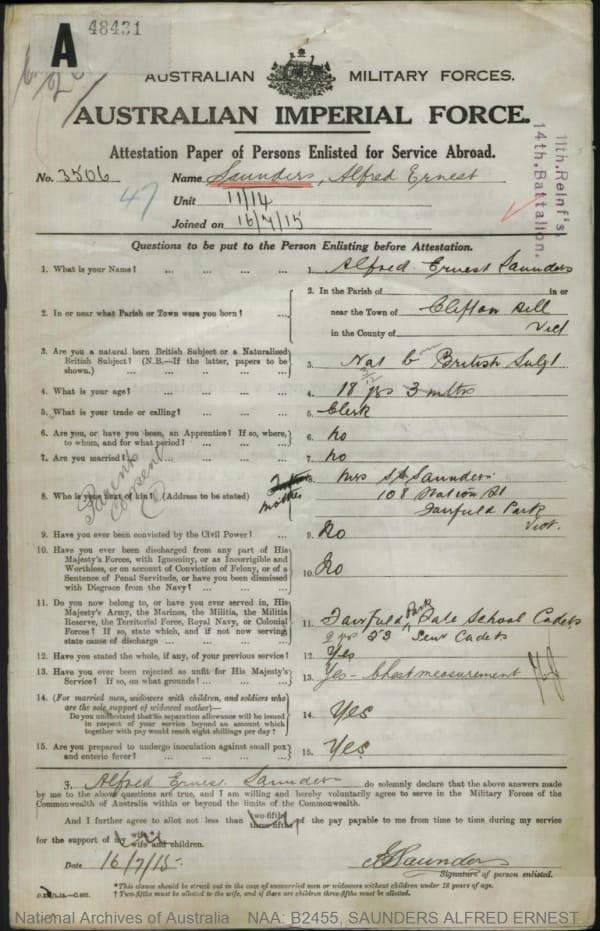 A
48431
AUSTRALIAN MILITARY FORCES.
AUSTRALIAN IMPERIAL FORCE.
Attestation Paper of Persons Enlisted for Service Abroad.
11th. Reinf's
14th. Battalion.
No. 3506 Name Saunders, Alfred Ernest
47
Unit 11/14
Joined on 16/7/15
Questions to be put to the Person Enlisting before Attestation.
1. What is your Name? ... ... ... ... 1. Alfred Ernest Saunders
2. In or near what Parish or Town were you born? ... 2. In the Parish of in or
near the Town of Clifton Hill
in the County of Vict
3. Are you a natural born British Subject or a Naturalised
British Subject? (N.B.—If the latter, papers to be
shown.) ... ... ... ... 3. Nat b British Subjt
4. What is your age? ... ... ... ... 4. 18 yrs 3 mths
5. What is your trade or calling? ... ... ... 5. Clerk
6. Are you, or have you been, an Apprentice? If so, where,
to whom, and for what period? ... ... ... 6. No
7. Are you married? ... ... ... ... 7. No
Parents
Consent
8. Who is your next of kin? (Address to be stated) Mother 8. Mrs S A Saunders
108 Station St
Fairfield Park
Vict.
9. Have you ever been convicted by the Civil Power? ... 9. No
10. Have you ever been discharged from any part of His
Majesty's Forces, with Ignominy, or as Incorrigible and
Worthless, or on account of Conviction of Felony, or of a
Sentence of Penal Servitude, or have you been dismissed
with Disgrace from the Navy? ... ... ... 10. No
11. Do you now belong to, or have you ever served in, His
Majesty's Army, the Marines, the Militia, the Militia
Reserve, the Territorial Force, Royal Navy, or Colonial
Forces? If so, state which, and if not now serving,
state cause of discharge ... ... ... 11. Fairfield Park Dale School Cadets
2 yrs Senr Cadets
12. Have you stated the whole, if any, of your previous service? 12. Yes
13. Have you ever been rejected as unfit for His Majesty's
Service? If so, on what grounds? ... ... ... 13. Yes - Chest measurement
14. (For married men, widowers with children, and soldiers who
are the sole support of widowed mother)—
Do you understand that no separation allowance will be issued
in respect of your service beyond an amount which
together with pay would reach eight shillings per day? 14. Yes
15. Are you prepared to undergo inoculation against small pox
and enteric fever? ... ... ... ... 15. Yes
I, Alfred Ernest Saunders do solemnly declare that the above answers made
by me to the above questions are true, and I am willing and hereby voluntarily agree to serve in the Military Forces of the
Commonwealth of Australia within or beyond the limits of the Commonwealth.
And I further agree to allot not less than two-fifths three-fifths of the pay payable to me from time to time during my service
for the support of my wife wife and children.
Date 16/7/15. A E Saunders
Signature of person enlisted.
*This clause should be struck out in the case of unmarried men or widowers without children under 18 years of age.
† Two-fifths must be allotted to the wife, and if there are children three-fifths must be allotted.
National Archives of Australia NAA: B2455, SAUNDERS ALFRED ERNEST